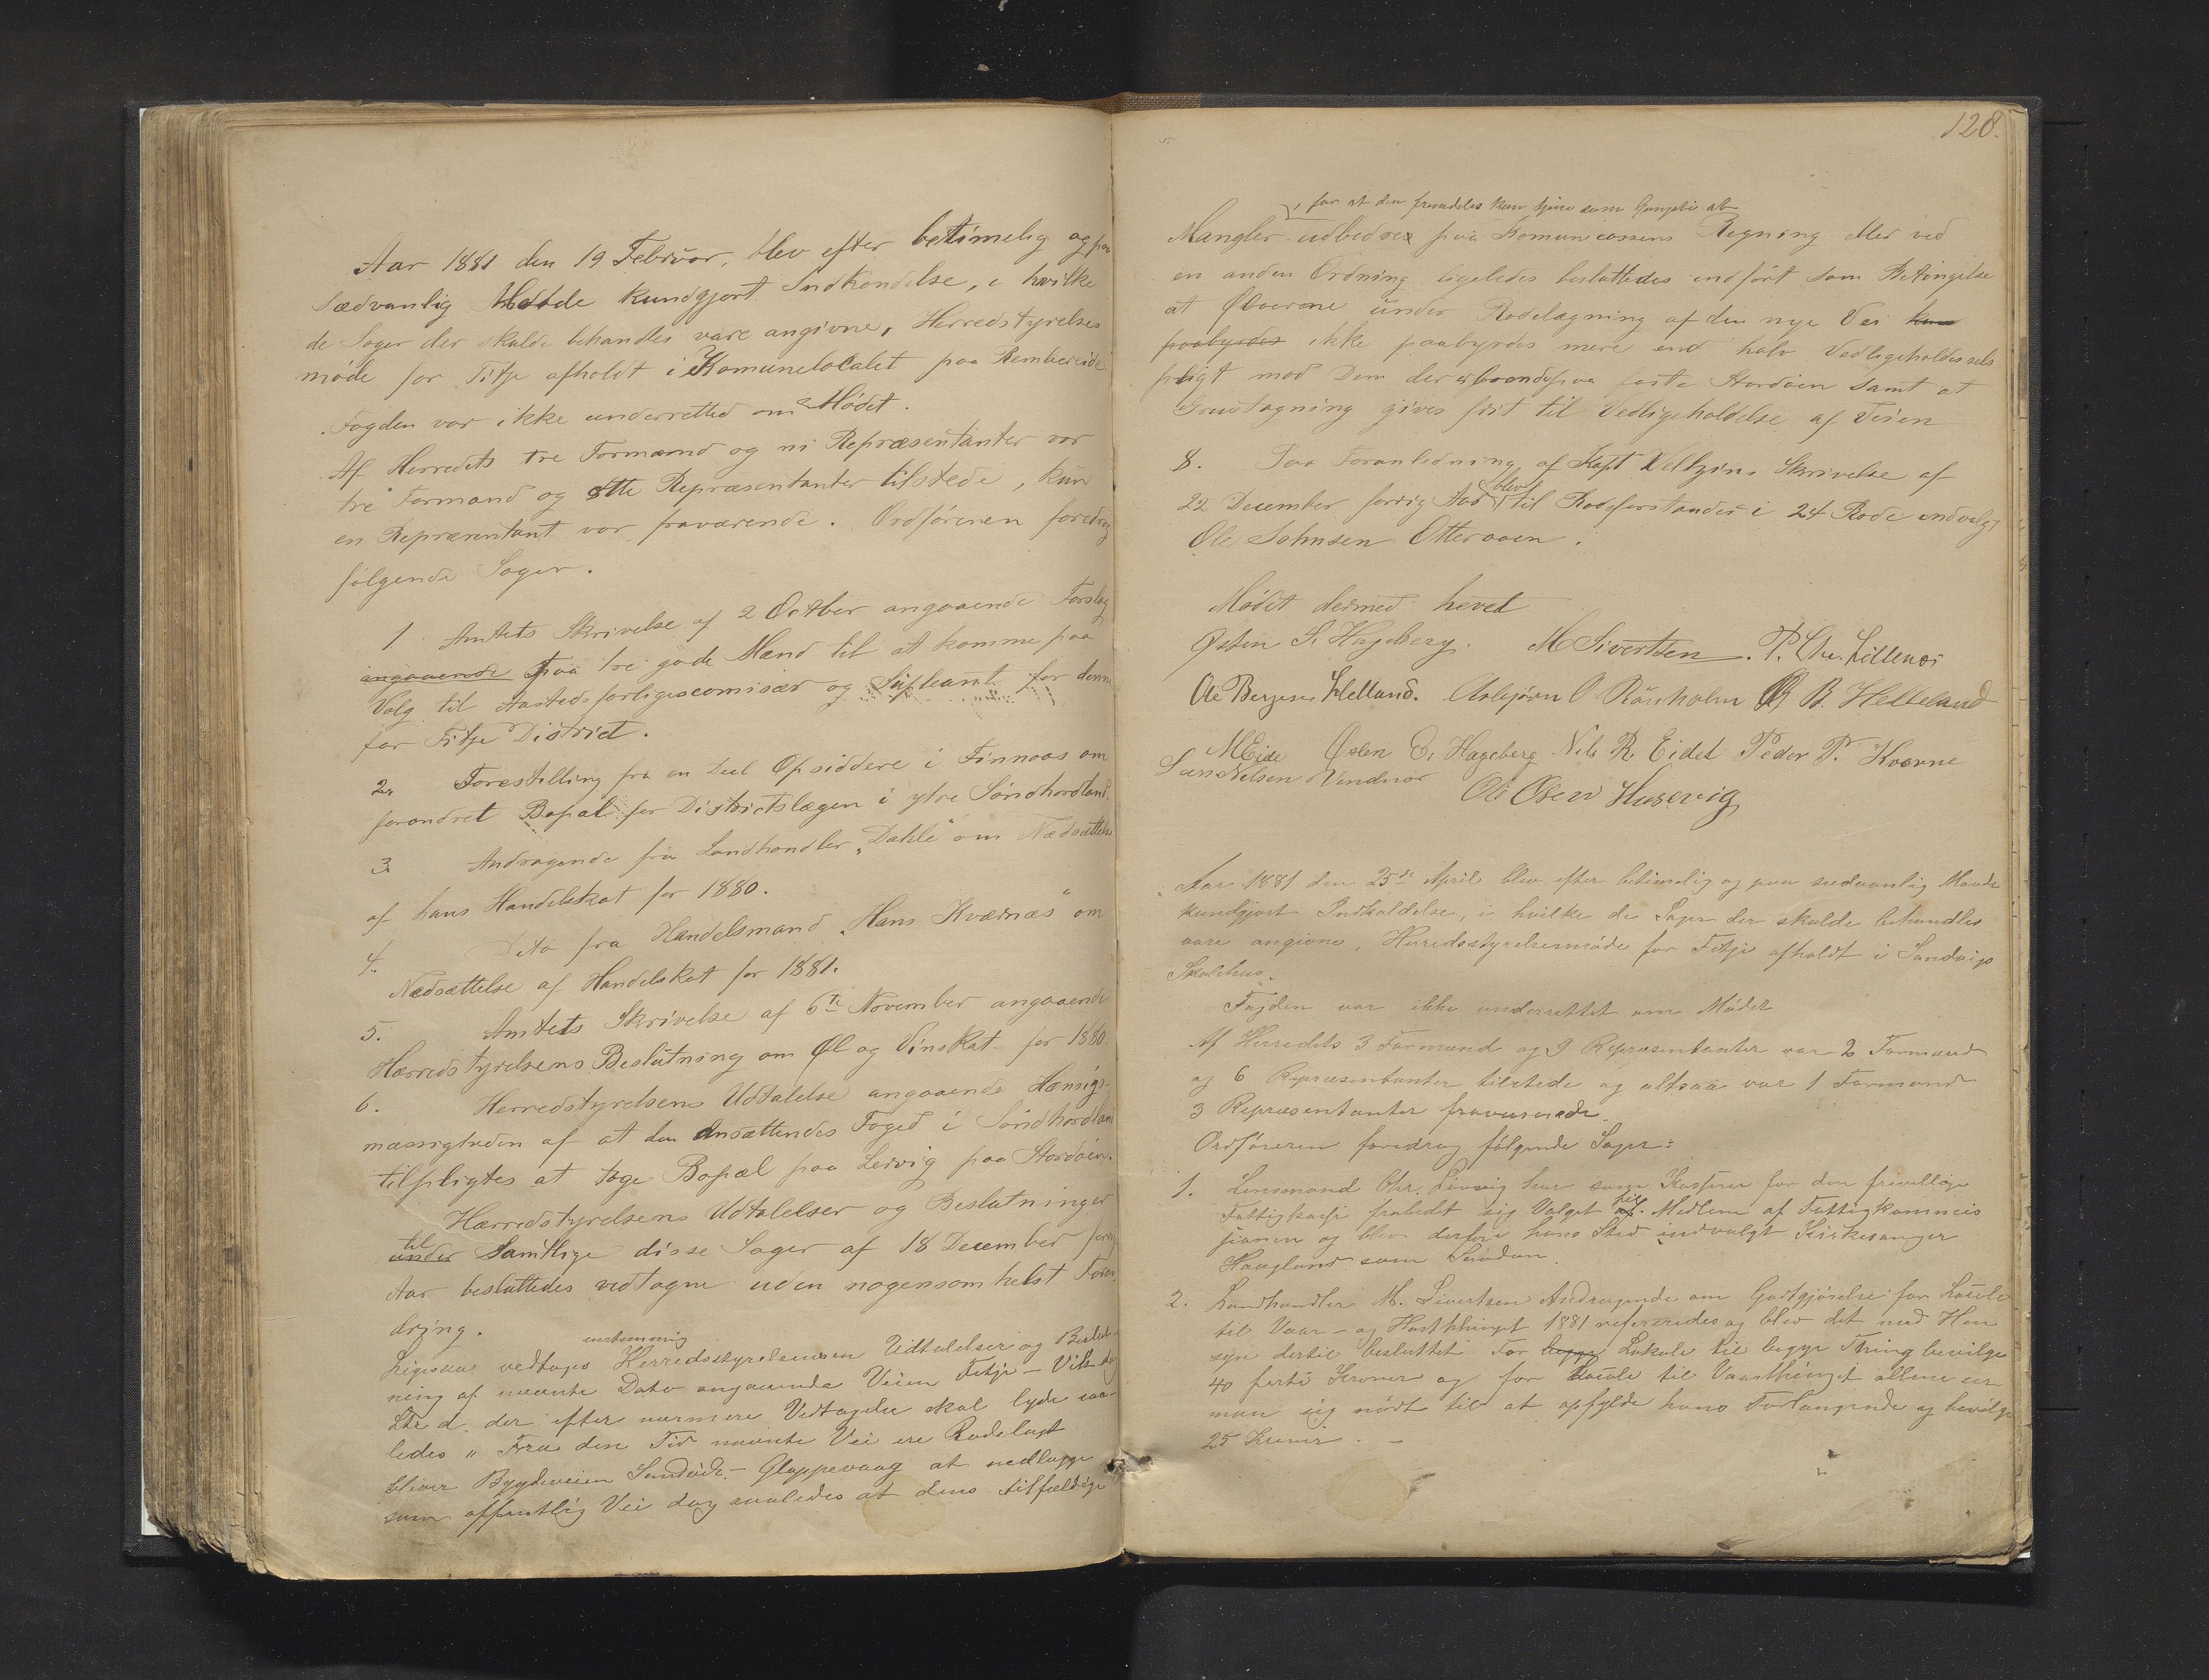 Aar 1881 den 19 Februar, blev efter betimelig og paa
sædvanlig Maade kundgjort Indkendelse, i hvilke
de Sager der skulde behandles vare angivne, Herredstyrelses
møde for Fitje afholdt i Komunelocalet paa Rembereide
Fogden var ikke underretted om Mødet.
Af Herredets tre Formænd og ni Repræsentanter var
tre Formænd og otte Repræsentanter tilstede, kun
en Repræsentant var fraværende. Ordføreren foredrog
følgende Sager.
1. Amtets Skrivelse af 2 October angaaende Forslag
angaaende paa tre gode Mænd til at komme paa
Valg til Aastedsforligescomisær og Supleant for denne
for Fitje District.
2. Forestilling fra en Deel Opsiddere i Finnaas om
forandret Bopæl for Districtslægen i ytre Søndhordland.
3. Andragende fra Landhandler „Dahle" om Nedsættelse
af hans Handelskat for 1880.
4. Dito fra Handelsmand „Hans Kværnæs" om
Nedsættelse af Handelskat for 1881.
5. Amtets Skrivelse af 6te November angaaende
Herredstyrelsens Beslutning om Øl og Vinskat for 1880
6. Herredstyrelsens Udtalelse angaaende Hensigs-
mæssigheden af at den Ansættendes Foged i Søndhordland
tilpligtes at tage Bopæl paa Lervig paa Stordøen.
Hærredstyrelsens Udtalelser og Beslutninger
til
under Samtlige disse Sager af 18 December forrig
Aar besluttedes vedtagne uden nogensomhelst Foran
dring.
eenstemmig
Ligesaa vedtoges Herredsstyrelsens Udtalelser og Beslut-
ning af nævnte Dato angaaende Veien Fitje – Vik
Litr d. der efter nærmere Vedtagelse skal lyde saa-
ledes „ Fra den Tid nævnte Vei ere Rodelagt
bliver Bygdeveien Sandvik – Gloppevaag at nedlægge
som offentlig Vei dog saaledes at dens tilfældige
128.
, for at den fremdeles kan tjene som
Mangler udbedres paa Komunecassens Regning eller ved
en anden Ordning ligeledes besluttedes indført som Betingelse
at Øboerne under Rodelægning af den nye Vei kun
paabyrdes ikke paabyrdes mere end halv Vedligeholdessels
pligt mod Dem der er boende paa faste Stordøen samt at
Grustagning gives frit til Vedligeholdelse af Veien
8. Paa Foranledning af Kapt Veltzins Skrivelse af
blev
22 December forrig Aar til Rodeforstander i 24 Rode indvalgt
Ole Johnsen Otteraaen.
Mødet dermed hevet
Østen S. Hageberg. M Sivertsen. P. Chr. Lillenes
Ole Bergesen Helland. Asbjørn O Raunholm B. Helleland
M Eide Osten E. Hageberg Nils R. Eidet Peder P. Kværne
Lars Nelsen Vindnes Ole Olsen Husevig
Aar 1881 den 25de April blev efter betimelig og paa sædvanlig Maade
kundgjort Indkaldelse, i hvilke de Sager der skulde behandles
vare angivne, Herredsstyrelsesmøde for Fitje afholdt i Sandvigs
Skolehus.
Fogden var ikke underrettet om Mødet
Af Herredets 3 Formænd og 9 Repræsentanter var 2 Formænd
og 6 Repræsentanter tilstede og altsaa var 1 Formand
3 Repræsentanter fraværende.
Ordføreren foredrog følgende Sager:
1. Lensmand Chr. Levnig har som Kasserer for den frivillige
Fattigkasse frabedt sig Valget til Medlem af Fattigkommis
sionen og blev derfor i hans Sted indvalgt Kirkesanger
Haugland som Saadan.
2. Landhandler M. Sivertsen Andragende om Godtgjørelse for Locale
til Vaar – og Høstthinget 1881 refereredes og blev det med Hen
syn dertil besluttet For begge Lokale til begge Thing bevilge
40 førti Kroner og for Locale til Vaarthinget allene ser
man sig nødt til at opfylde hans Forlangende og bevilge
25 Kroner. –